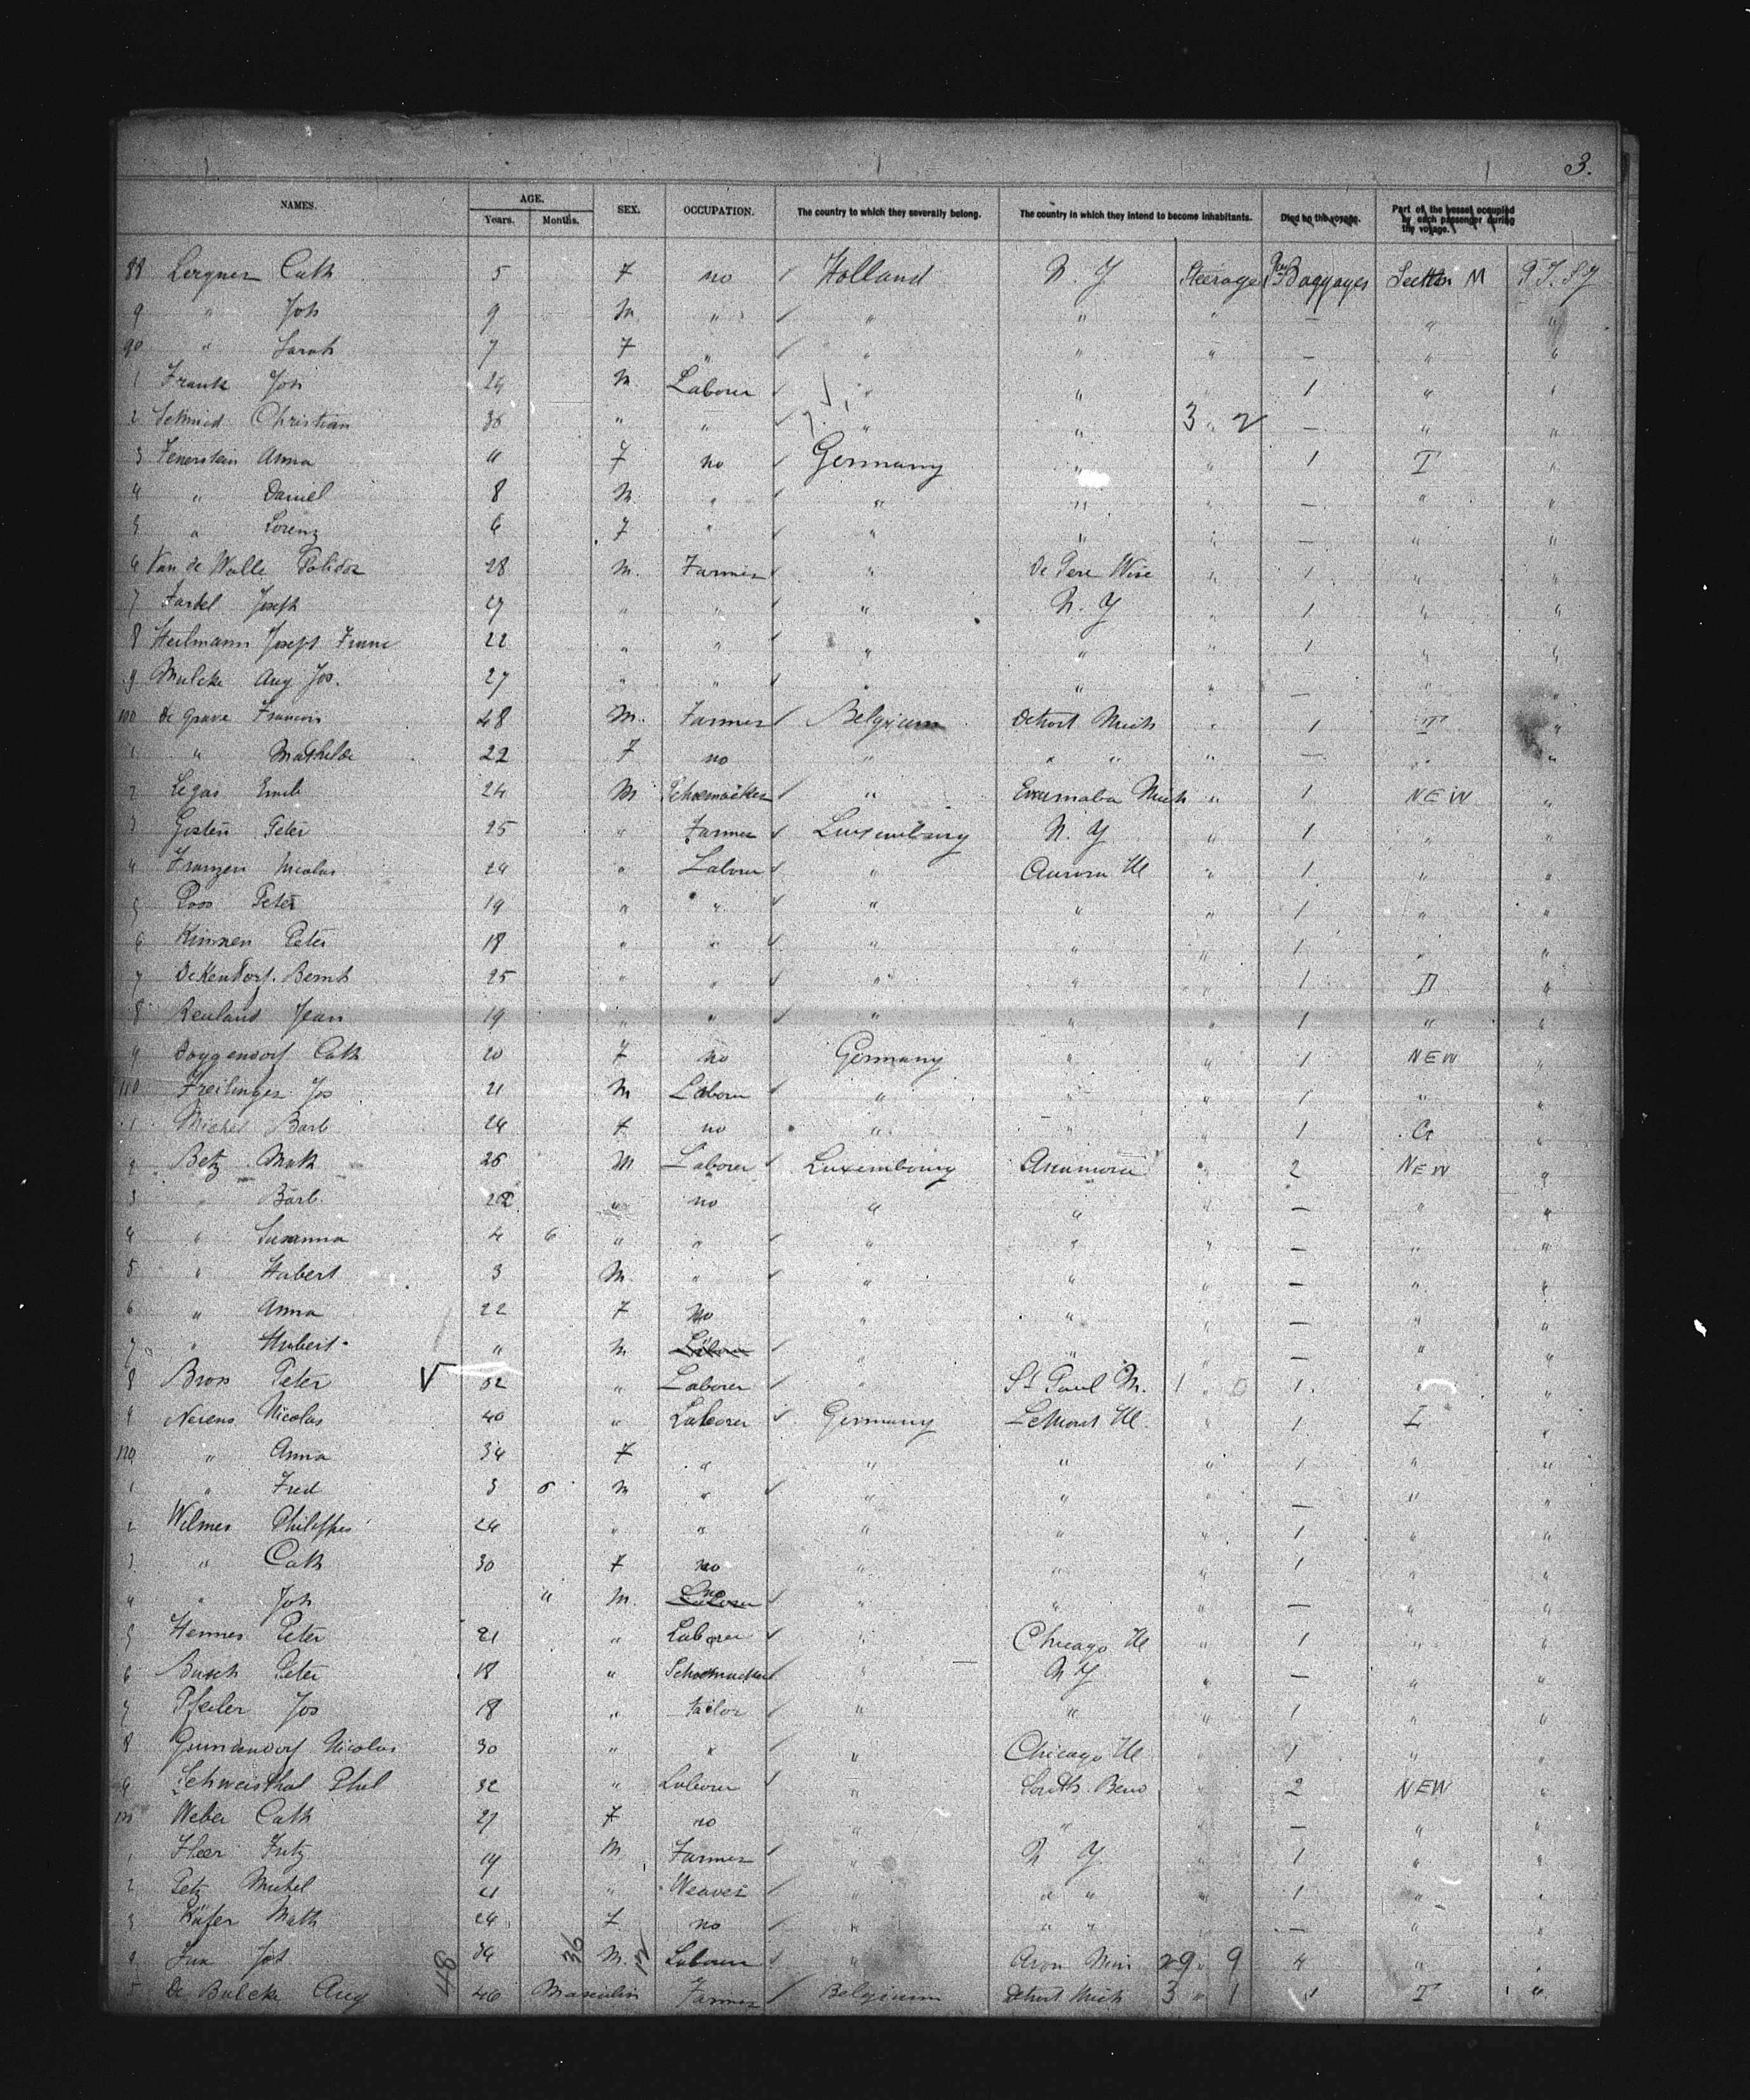 3.
NAMES. AGE. Years. Months. SEX. OCCUPATION. The country to which they severally belong. The country in which they intend to become inhabitants. Died on the voyage. Part of the vessel occupied by each passenger during the voyage.
88 Lergner Cath 5 F no Holland N. Y Steerage Baggages Section M
9 " Joh 9 M " " " " — " "
90 " Sarah 7 F " " " " — " "
1 Frank Joh M Labour " " 1 " "
2 Schmid Christian 36 " " " " 3 " 2 — " "
3 Feuerstein Anna 11 F no Germany " " 1 I "
4 " Daniel 8 M " " " " — " "
5 " Lorenz 6 F " " " " — " "
6 Van de Walle Polidor 28 M. Farmer " De Pere Wise " 1 " "
7 Joseph 27 " " " N. Y " 1 " "
8 Heilmann Joseph Franc 22 " " " " " 1 " "
9 Mulcke Aug Jos. 27 " " " " " — " "
100 De Grave Francois 48 M. Farmer Belgium Detroit Mich " 1 I "
1 " Mathilde 22 F no " " " " — " "
2 Legas Emile 24 M Schoemacker " Mich " 1 NEW "
3 Peter 25 " Farmer Luxembourg N. Y " 1 " "
4 Franzen Nicolas 24 " Labour " Aurora Ill " 1 " "
5 Poos Peter 19 " " " " " 1 " "
6 Kinnen Peter 18 " " " " " 1 " "
7 Dekendorf Bernh 25 " " " " " 1 II "
8 Reuland Jean 19 " " " " " 1 " "
9 Cath 20 F no Germany " " 1 NEW "
110 Freilinger Jos 21 M Labour " " " 1 " "
1 Michel Barb 24 F no " " " 1 "
2 Betz Math 26 M Laborer Luxembourg " 2 NEW "
3 " Barb 28 " no " " " — " "
4 " Susanna 4 6 " " " " " — " "
5 " Hubert 3 M. " " " " — " "
6 " Anna 22 F no " " " — " "
7 " Hubert " M " " " — " "
8 Bross Peter 32 " Laborer " St Paul M. 1 " 0 1 " "
9 Nerens Nicolas 40 " Laborer Germany LeMont Ill. " 1 I "
120 " Anna 34 F " " " " 1 " "
1 " Fred 3 6 M " " " " — " "
2 Wilmes Philippe 24 " " " " " 1 " "
3 " Cath 30 F no " " " 1 " "
4 " Joh " M. no " " " — " "
5 Hennes Peter 21 " Laborer " Chicago Ill " 1 " "
6 Busch Peter 18 " Schoemacker " N Y " — " "
7 Pfeiler Jos 18 " tailor " " " 1 " "
8 Nicolas 30 " " " Chicago Ill " 1 " "
9 Schweisthal Phil 32 " Labour " South Bend " 2 NEW "
130 Weber Cath 27 F no " " " — " "
1 Fritz 19 M Farmer " N Y " 1 " "
2 Petz Michel 21 " Weaver " " " " 1 " "
3 Käfer Math 24 F no " " " " — " "
4 Jux Joh 34 M. Labour " 29 " 9 4 " "
5 De Bulcke Aug 46 Masculin Farmer Belgium Detroit Mich 3 " 1 1 I "